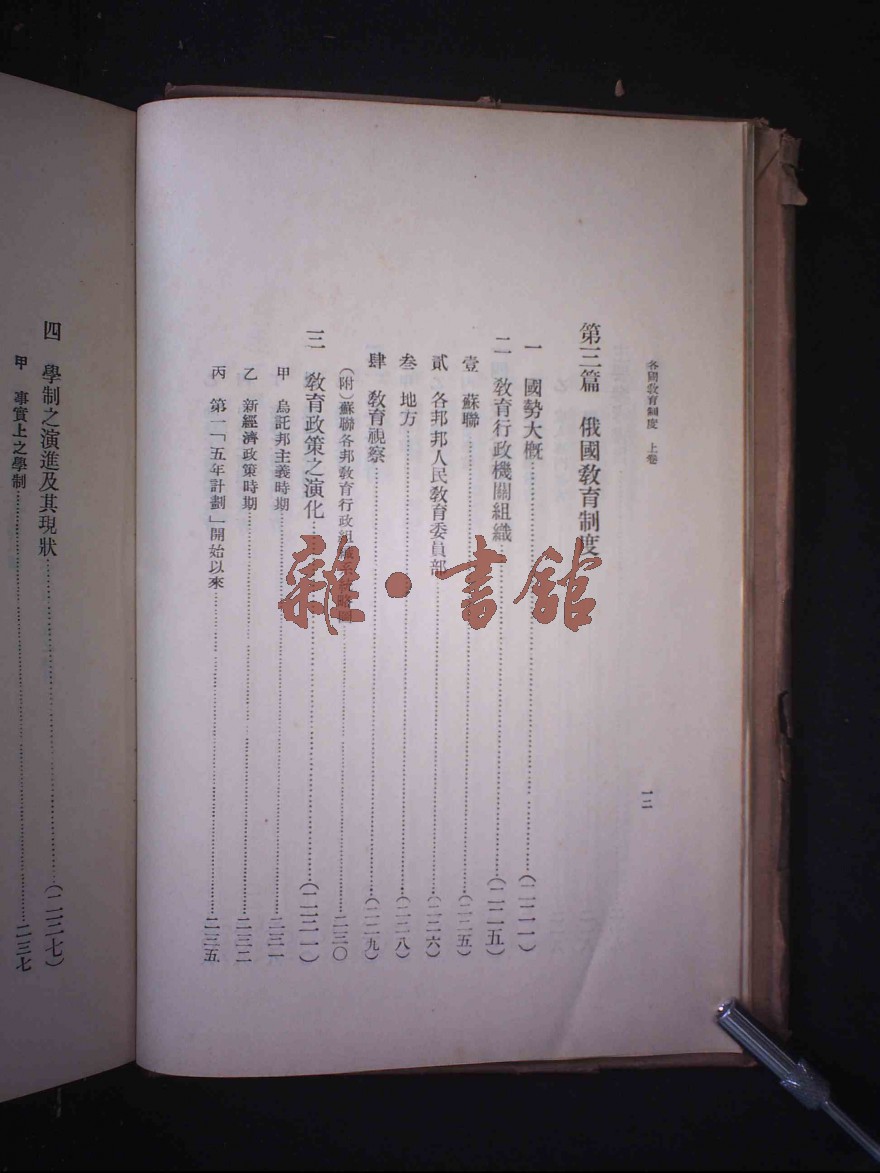 各國敎育制度 上卷
一二
第三篇 俄國敎育制度
一 國勢大概……(二二一)
二 敎育行政機關組織……(二二五)
壹 蘇聯……(二二五)
貳 各邦邦人民敎育委員部……(二二六)
叁 地方……(二二八)
肆 敎育視察……(二二九)
(附)蘇聯各邦敎育行政組織系統略圖……二三〇
三 敎育政策之演化……(二三一)
甲 烏託邦主義時期……二三一
乙 新經濟政策時期……二三二
丙 第一「五年計劃」開始以來……二三五
四 學制之演進及其現狀……(二三七)
甲 事實上之學制……二三七
雜·書館